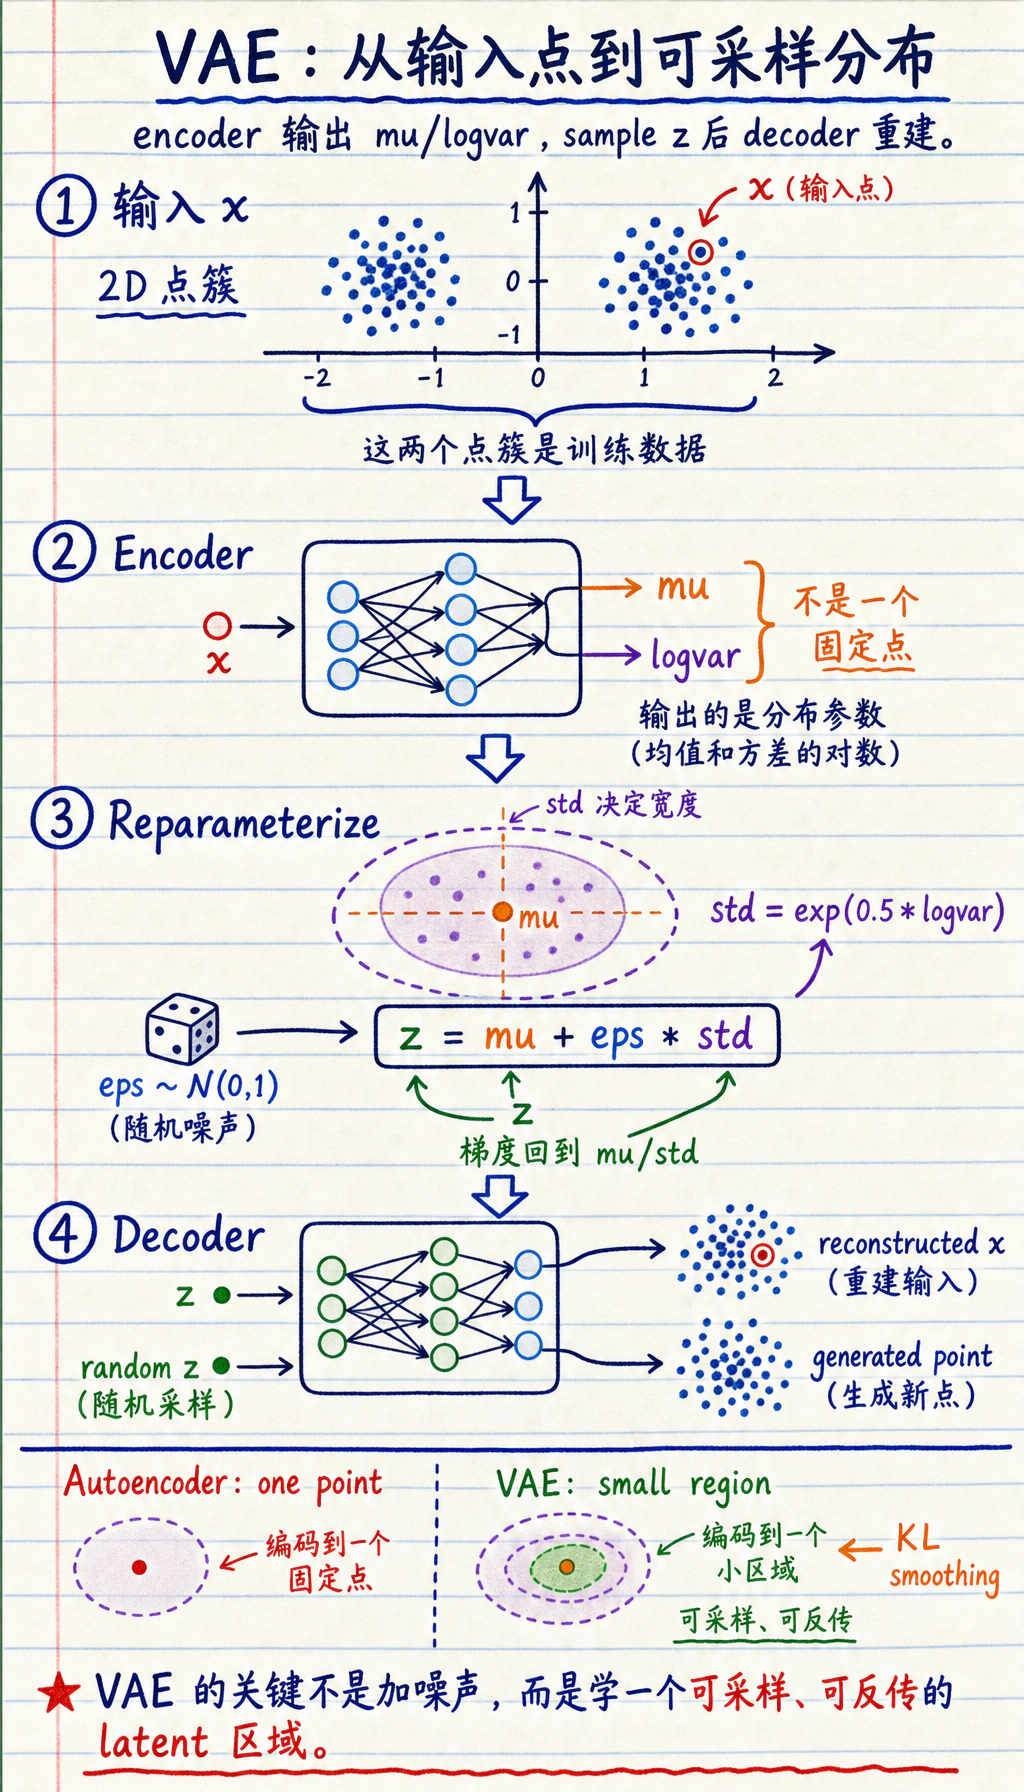 VAE：从输入点到可采样分布
encoder 输出 mu/logvar，sample z 后 decoder 重建。
① 输入 x
2D 点簇
x（输入点）
1
0
-1
-2 -1 0 1 2
这两个点簇是训练数据
② Encoder
x
mu
logvar
不是一个
固定点
输出的是分布参数
（均值和方差的对数）
③ Reparameterize
std 决定宽度
mu
std = exp(0.5 * logvar)
z = mu + eps * std
eps ~ N(0,1)
（随机噪声）
z
梯度回到 mu/std
④ Decoder
z
random z
（随机采样）
reconstructed x
（重建输入）
generated point
（生成新点）
Autoencoder: one point
编码到一个
固定点
VAE: small region
编码到一个
小区域
KL
smoothing
可采样、可反传
★ VAE 的关键不是加噪声，而是学一个可采样、可反传的
latent 区域。